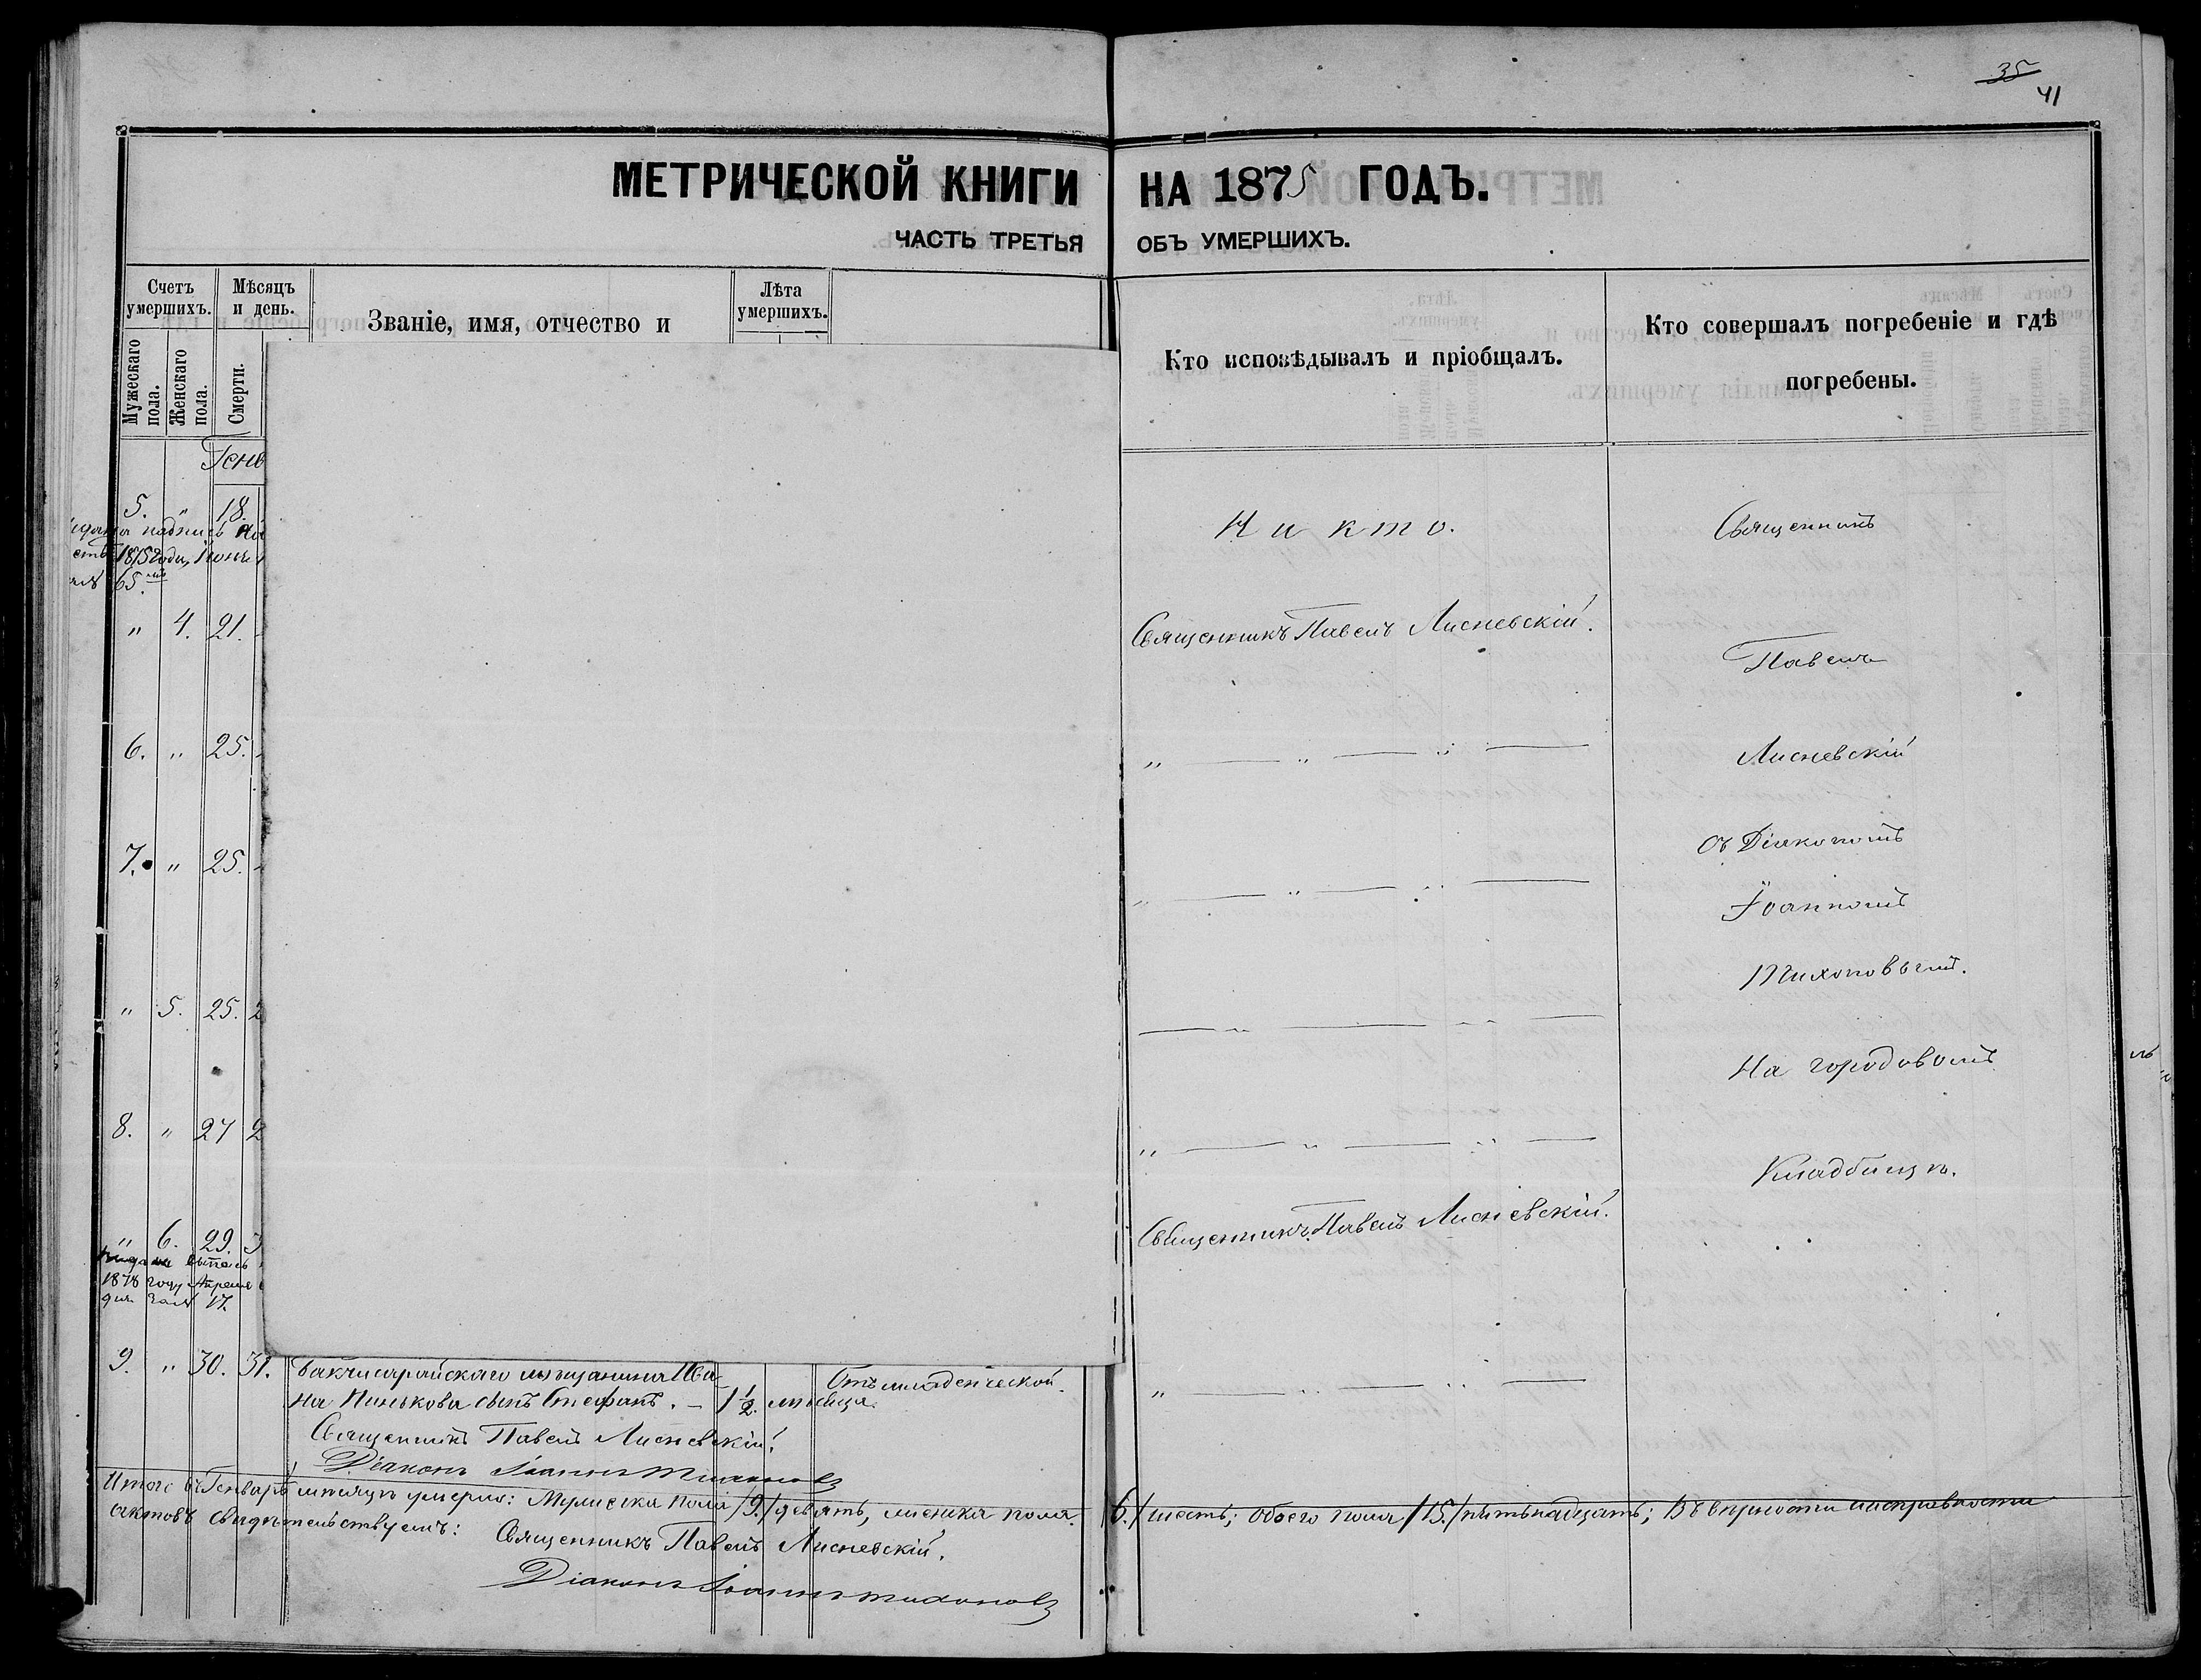 35
41
МЕТРИЧЕСКОЙ КНИГИ НА 1875 ГОДЪ.
ЧАСТЬ ТРЕТЬЯ ОБЪ УМЕРШИХЪ.
Счетъ умершихъ.
Мужескаго пола.
Женскаго пола.
Мѣсяцъ и день.
Смерти.
Званіе, имя, отчество и
Лѣта умершихъ.
Кто исповѣдывалъ и пріобщалъ.
Кто совершалъ погребеніе и гдѣ
погребены.
Генв
5. " 18.
надпись
1875 года, Іюня
65.
Никто.
Священникъ
" 4. 21.
Священникъ Павелъ Лисневскій.
Павелъ
6. " 25.
" — " — " —
Лисневскій
съ Діакономъ
7. " 25.
" — " — " —
Іоанномъ
Тихоновымъ.
" 5. 25. 2
— " — " —
На городовомъ
8. " 27 2
" — " — " —
Кладбищѣ.
" 6. 29. 3
Священникъ Павелъ Лисневскій.
1878 году Апреля
17.
9. " 30. 31. Бакчисарайскаго мѣщанина Ива-
на Пинькова сынъ Стефанъ. — 1 1/2.
Отъ младенческой.
" — " — " —
Священникъ Павелъ Лисневскій.
Діаконъ Іоаннъ Тихоновъ
Итого въ Генварѣ мѣсяцѣ умерло: Мужеска пола /9./ девять, женска пола 6./ шесть; обоего пола /15./ пятьнадцать; Въ вѣрности и исправности
актовъ свидѣтельствуемъ:
Священникъ Павелъ Лисневскій.
Діаконъ Іоаннъ Тихоновъ